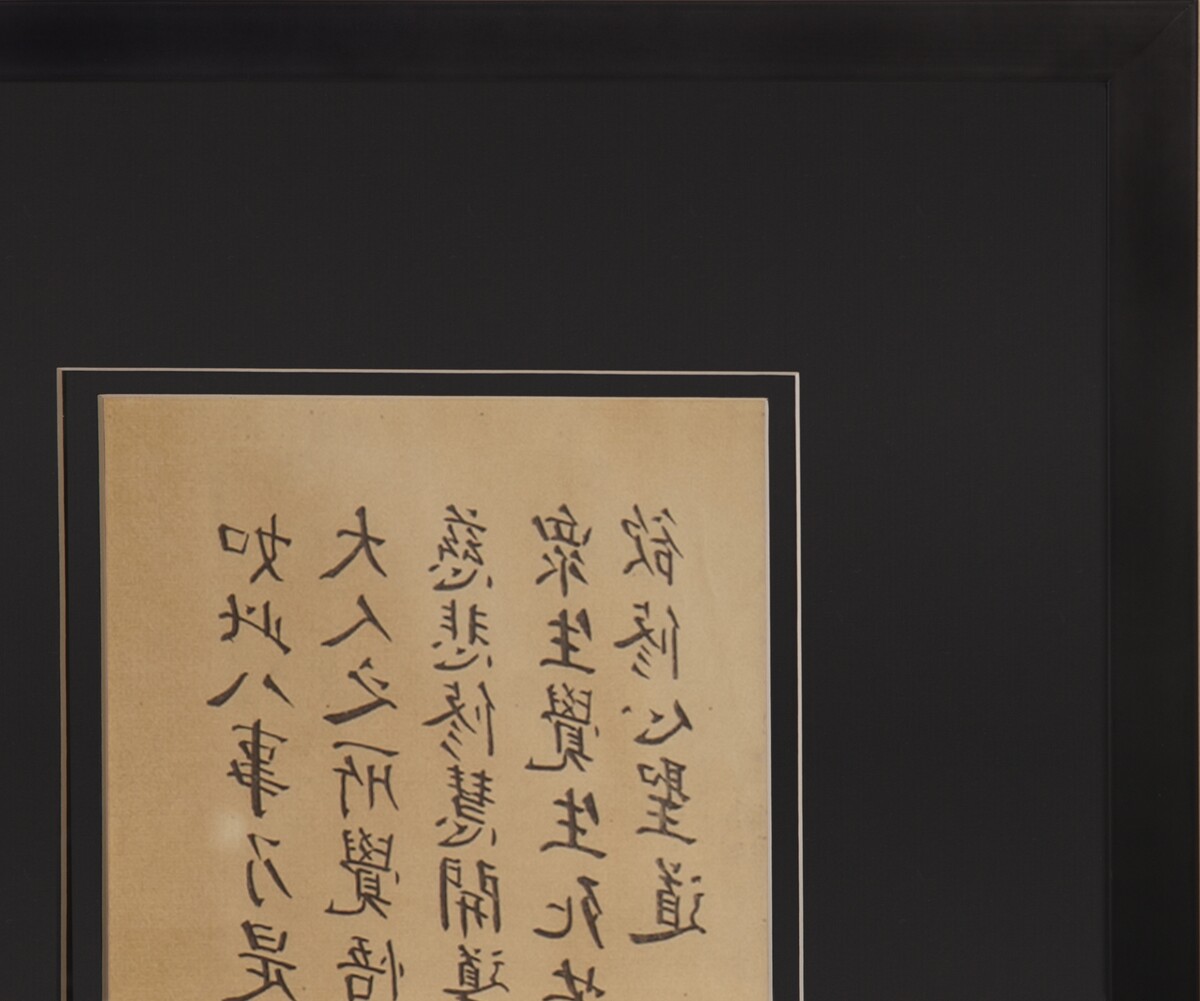 如此八事乃是
大人之所覺悟
慈悲修慧開道
衆生覺生死
欲修心聖道